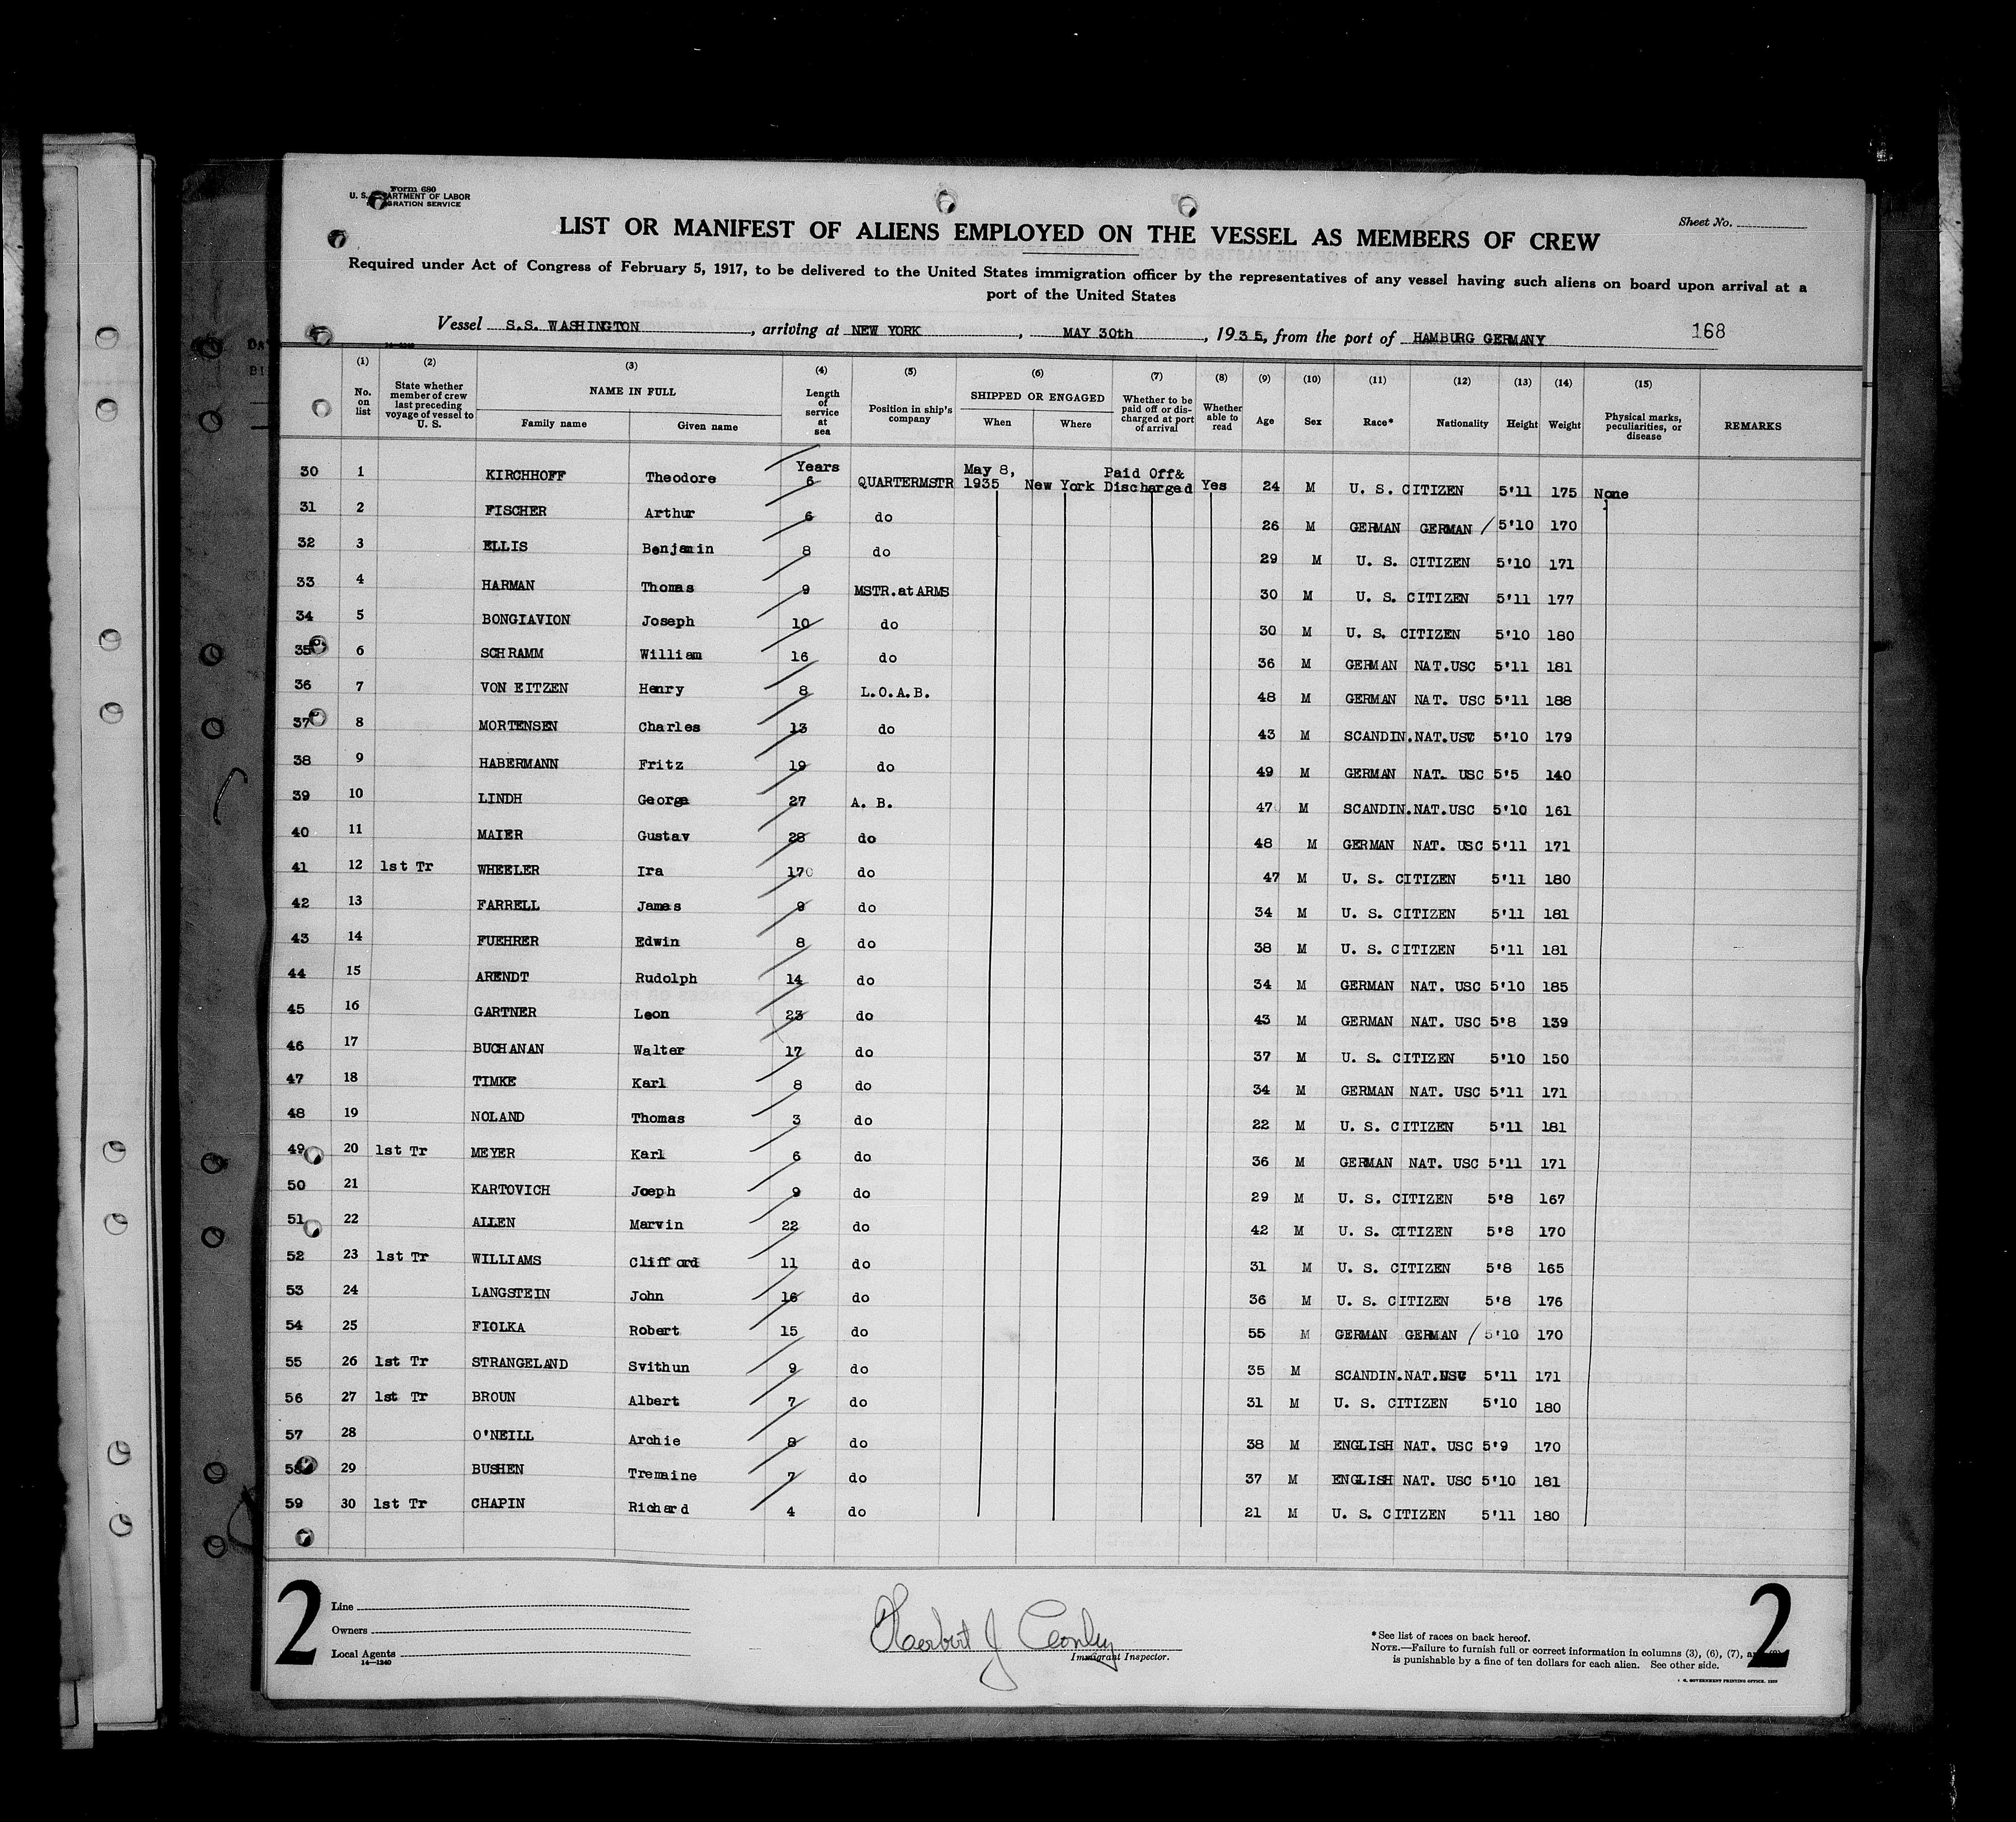 Form 680
U. S. DEPARTMENT OF LABOR
IMMIGRATION SERVICE
Sheet No.
LIST OR MANIFEST OF ALIENS EMPLOYED ON THE VESSEL AS MEMBERS OF CREW
Required under Act of Congress of February 5, 1917, to be delivered to the United States immigration officer by the representatives of any vessel having such aliens on board upon arrival at a
port of the United States
Vessel S.S. WASHINGTON, arriving at NEW YORK, MAY 30th, 1935, from the port of HAMBURG GERMANY 168
(1) (2) (3) (4) (5) (6) (7) (8) (9) (10) (11) (12) (13) (14) (15)
No. on list State whether member of crew last preceding voyage of vessel to U. S. NAME IN FULL Family name Given name Length of service at sea Position in ship's company SHIPPED OR ENGAGED When Where Whether to be paid off or discharged at port of arrival Whether able to read Age Sex Race* Nationality Height Weight Physical marks, peculiarities, or disease REMARKS
30 1 KIRCHHOFF Theodore Years 6 QUARTERMSTR May 8, 1935 New York Paid Off& Discharged Yes 24 M U. S. CITIZEN 5'11 175 None
31 2 FISCHER Arthur 6 do 26 M GERMAN GERMAN / 5'10 170
32 3 ELLIS Benjamin 8 do 29 M U. S. CITIZEN 5'10 171
33 4 HARMAN Thomas 9 MSTR.at ARMS 30 M U. S. CITIZEN 5'11 177
34 5 BONGIAVION Joseph 10 do 30 M U. S. CITIZEN 5'10 180
35 6 SCHRAMM William 16 do 36 M GERMAN NAT.USC 5'11 181
36 7 VON EITZEN Henry 8 L.O.A.B. 48 M GERMAN NAT. USC 5'11 188
37 8 MORTENSEN Charles 13 do 43 M SCANDIN.NAT.USC 5'10 179
38 9 HABERMANN Fritz 19 do 49 M GERMAN NAT. USC 5'5 140
39 10 LINDH George 27 A. B. 47 M SCANDIN.NAT.USC 5'10 161
40 11 MAIER Gustav 28 do 48 M GERMAN NAT. USC 5'11 171
41 12 1st Tr WHEELER Ira 17 do 47 M U. S. CITIZEN 5'11 180
42 13 FARRELL James 9 do 34 M U. S. CITIZEN 5'11 181
43 14 FUEHRER Edwin 8 do 38 M U. S. CITIZEN 5'11 181
44 15 ARENDT Rudolph 14 do 34 M GERMAN NAT. USC 5'10 185
45 16 GARTNER Leon 23 do 43 M GERMAN NAT. USC 5'8 139
46 17 BUCHANAN Walter 17 do 37 M U. S. CITIZEN 5'10 150
47 18 TIMKE Karl 8 do 34 M GERMAN NAT. USC 5'11 171
48 19 NOLAND Thomas 3 do 22 M U. S. CITIZEN 5'11 181
49 20 1st Tr MEYER Karl 6 do 36 M GERMAN NAT. USC 5'11 171
50 21 KARTOVICH Joeph 9 do 29 M U. S. CITIZEN 5'8 167
51 22 ALLEN Marvin 22 do 42 M U. S. CITIZEN 5'8 170
52 23 1st Tr WILLIAMS Clifford 11 do 31 M U. S. CITIZEN 5'8 165
53 24 LANGSTEIN John 16 do 36 M U. S. CITIZEN 5'8 176
54 25 FIOLKA Robert 15 do 55 M GERMAN GERMAN / 5'10 170
55 26 1st Tr STRANGELAND Svithun 9 do 35 M SCANDIN.NAT.USC 5'11 171
56 27 1st Tr BROUN Albert 7 do 31 M U. S. CITIZEN 5'10 180
57 28 O'NEILL Archie 8 do 38 M ENGLISH NAT. USC 5'9 170
58 29 BUSHEN Tremaine 7 do 37 M ENGLISH NAT. USC 5'10 181
59 30 1st Tr CHAPIN Richard 4 do 21 M U. S. CITIZEN 5'11 180
2 2
Line
Owners
Local Agents
14—1240
Herbert J
Immigrant Inspector.
*See list of races on back hereof.
NOTE.—Failure to furnish full or correct information in columns (3), (6), (7),
is punishable by a fine of ten dollars for each alien. See other side.
GOVERNMENT PRINTING OFFICE